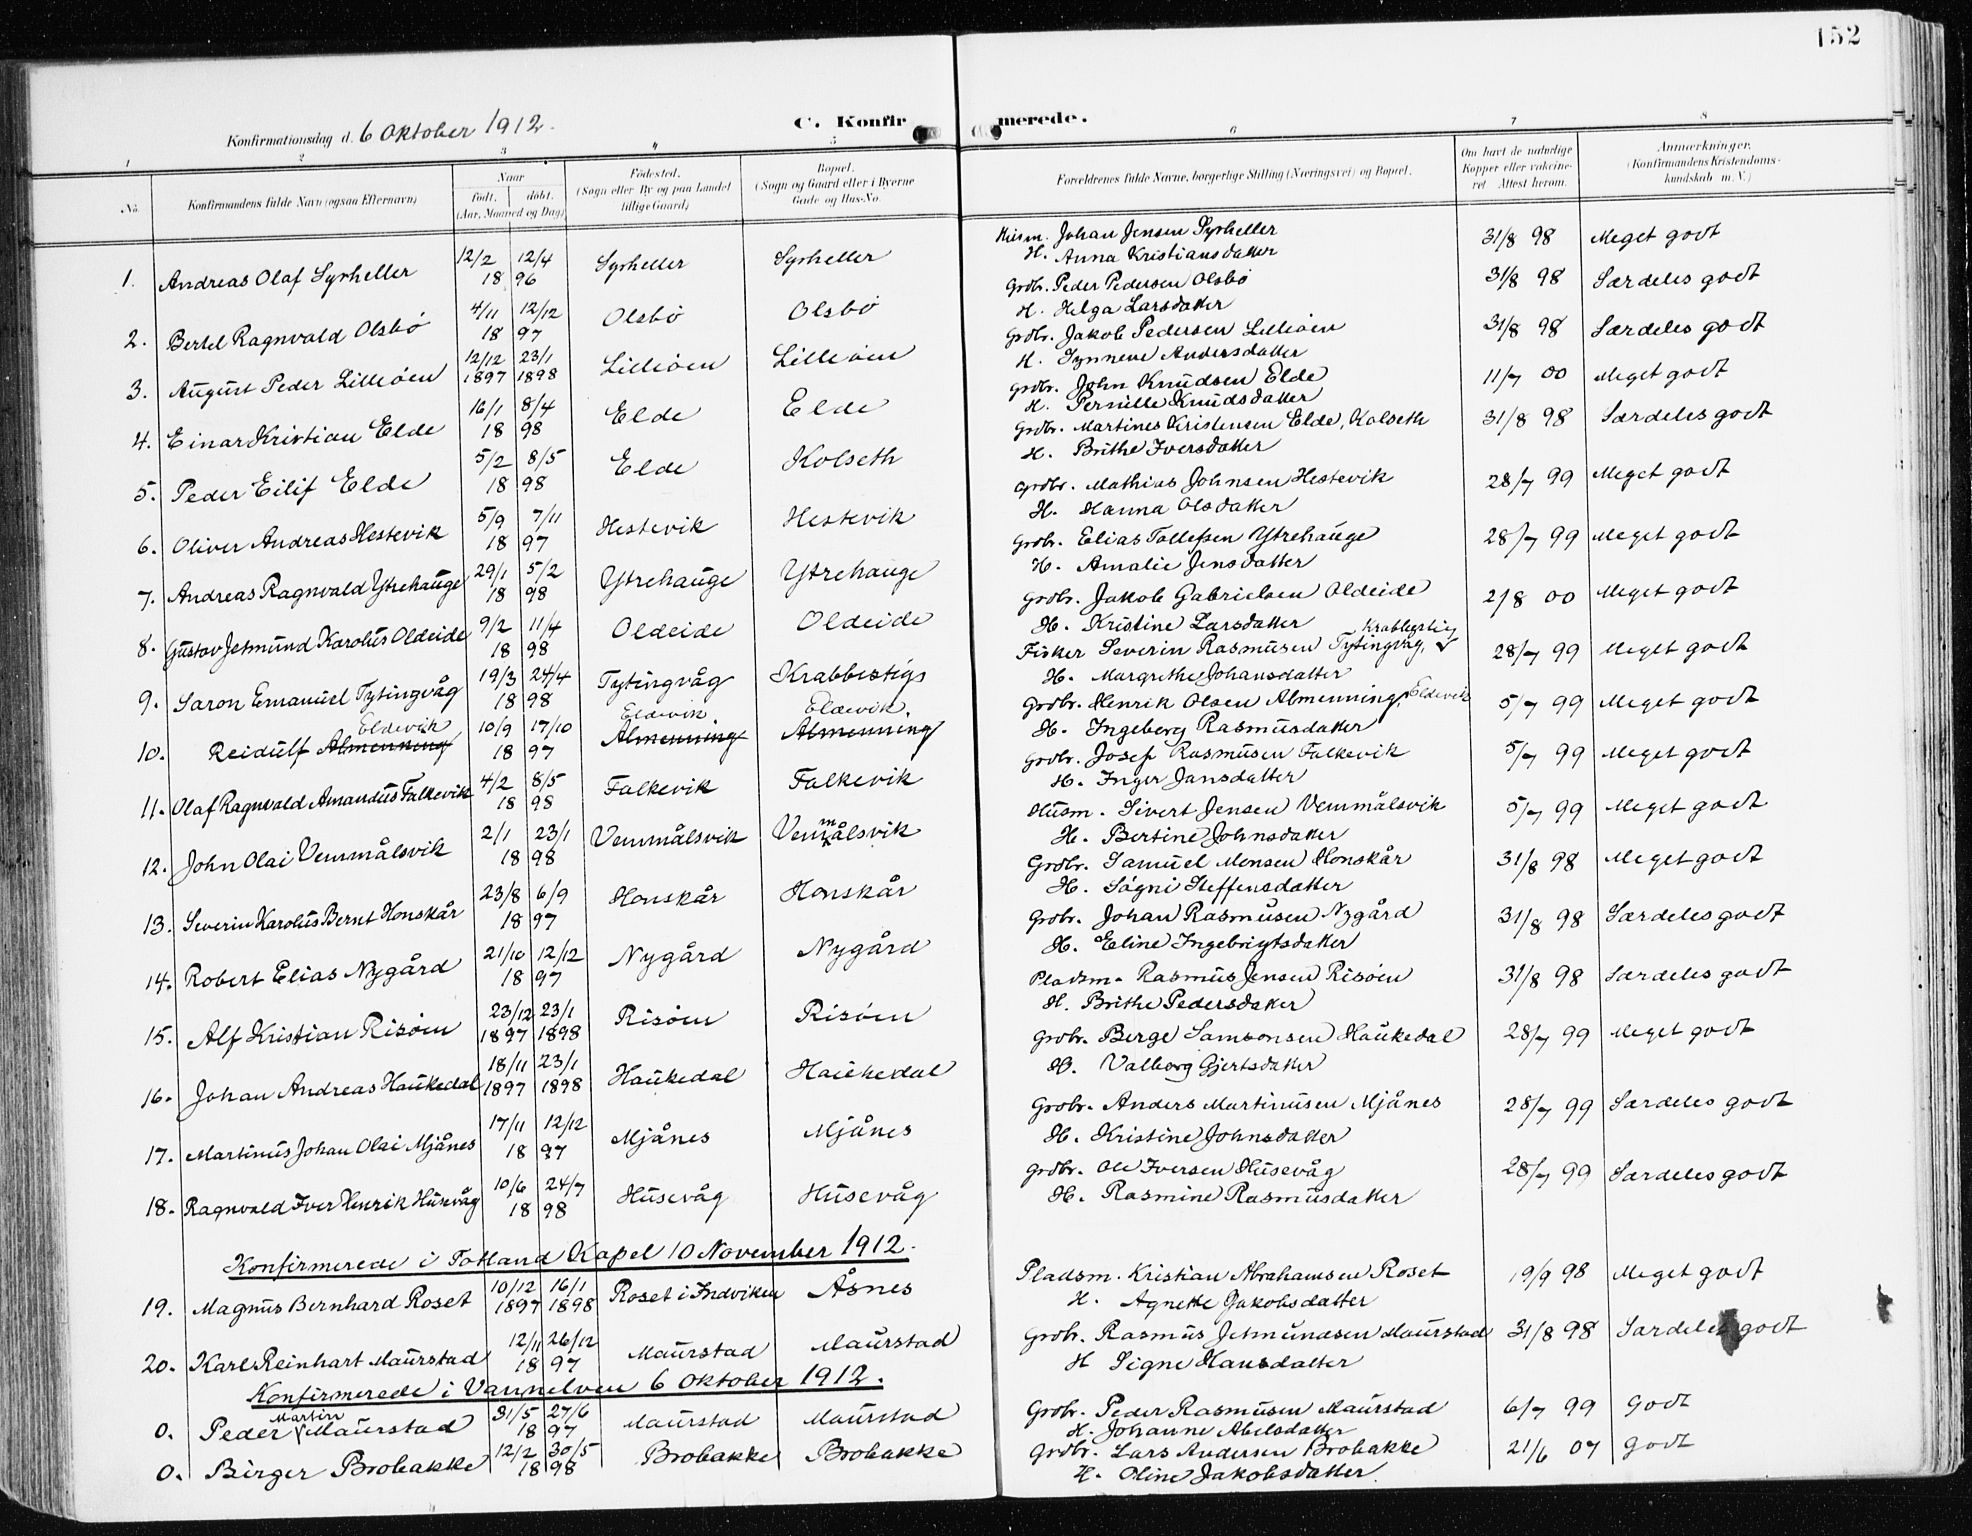 152
Konfirmationsdag d. 6 Oktober 1912.
C. Konfirmerede.
1 2 3 4 5 6 7 8
No. Konfirmandens fulde Navn (ogsaa Efternavn) Naar født. døbt. (Aar, Maaned og Dag) Fødested. (Sogn eller By og paa Landet tillige Gaard) Bopæl. (Sogn og Gaard eller i Byerne Gade og Hus-No. Forældrenes fulde Navne, borgerlige Stilling (Næringsvei) og Bopæl. Om havt de naturlige Kopper eller vakcineret Attest herom. Anmærkninger. (Konfirmandens Kristendomskundskab m. V.)
1. Andreas Olaf Syrheller 12/2 12/4 1896 Syrheller Syrheller Husm. Johan Jensen Syrheller 31/8 98 Meget godt
H. Anna Kristiansdatter
2. Bertel Ragnvald Olsbö 4/11 12/12 1897 Olsbö Olsbö Grdbr. Peder Pedersen Olsbö 31/8 98 Særdeles godt
H. Helga Larsdatter
3. August Peder Lilleöen 12/12 1897 23/1 1898 Lilleöen Lilleöen Grdbr. Jakob Pedersen Lilleöen 31/8 98 Særdeles godt
H. Synneve Andersdatter
4. Einar Kristian Elde 16/1 8/4 1898 Elde Elde Grdbr. John Knudsen Elde 11/7 00 Meget godt
H. Pernille Knudsdatter
5. Peder Eilif Elde 5/2 8/5 1898 Elde Kolseth Grdbr. Martines Kristensen Elde, Kolseth 31/8 98 Særdeles godt
H. Brithe Iversdatter
6. Oliver Andreas Hestevik 5/9 7/11 1897 Hestevik Hestevik Grdbr. Mathias Johnsen Hestevik 28/7 99 Meget godt
H. Hanna Olsdatter
7. Andreas Ragnvald Ytrehauge 29/1 5/2 1898 Ytrehauge Ytrehauge Grdbr. Elias Tollefsen Ytrehauge 28/7 99 Meget godt
H. Amalie Jensdatter
8. Gustav Jetmund Karolus Oldeide 9/2 11/4 1898 Oldeide Oldeide Grdbr. Jakob Gabrielsen Oldeide 2/8 00 Meget godt
H. Kristine Larsdatter
9. Saron Emanuel Tytingvåg 19/3 24/4 1898 Tytingvåg Krabbestigs Fisker Severin Rasmusen Tytingvåg, 28/7 99 Meget godt
H. Margrethe Johansdatter
10. Reidulf Almenning Eldevik 10/9 17/10 1897 Almenning Eldevik. Almenning Eldevik. Grdbr. Henrik Olsen Almenning, Eldevik 5/7 99 Meget godt
H. Ingeberg Rasmusdatter
11. Olaf Ragnvald Amandus Falkevik 4/2 8/5 1898 Falkevik Falkevik Grdbr. Josef Rasmusen Falkevik 5/7 99 Meget godt
H. Inger Jansdatter
12. John Olai Vemmålsvik 2/1 23/1 1898 Vemmålsvik Vemmålsvik Husm. Sivert Jensen Vemmålsvik 5/7 99 Meget godt
H. Bertine Johnsdatter
13. Severin Karolus Bernt Honskår 23/8 6/9 1897 Honskår Honskår Grdbr. Samuel Monsen Honskår 31/8 98 Meget godt
H. Sögni Steffensdatter
14. Robert Elias Nygård 21/10 12/12 1897 Nygård Nygård Grdbr. Johan Rasmusen Nygård 31/8 98 Særdeles godt
H. Eline Ingebrigtsdatter
15. Alf Kristian Risöen 23/12 1897 23/1 1898 Risöen Risöen Pladsm. Rasmus Jensen Risöen 31/8 98 Særdeles godt
H. Brithe Pedersdatter
16. Johan Andreas Haukedal 18/11 1897 23/1 1898 Haukedal Haukedal Grdbr. Berge Samsonsen Haukedal 28/7 99 Meget godt
H. Valborg Gjertsdatter
17. Martinus Johan Olai Mjånes 17/11 12/12 1897 Mjånes Mjånes Grdbr. Anders Martinusen Mjånes 28/7 99 Særdeles godt
H. Kristine Johnsdatter
18. Ragnvald Iver Henrik Husevåg 10/6 24/7 1898 Husevåg Husevåg Grdbr. Ole Iversen Husevåg 28/7 99 Særdeles godt
H. Rasmine Rasmusdatter
Konfirmerede i Totland Kapel 10 November 1912.
19. Magnus Bernhard Roset 10/12 1897 16/1 1898 Roset i Indviken Åsnes Pladsm. Kristian Abrahamsen Roset 19/9 98 Meget godt
H. Agnethe Jakobsdatter
20. Karl Reinhart Maurstad 12/11 26/12 1897 Maurstad Maurstad Grdbr. Rasmus Jetmundsen Maurstad 31/8 98 Særdeles godt
H Signe Hansdatter
Konfirmerede i Vannelven 6 Oktober 1912.
0. Peder Martin Maurstad 31/5 27/6 1897 Maurstad Maurstad Grdbr. Peder Rasmusen Maurstad 6/7 99 Godt
H. Johanne Abelsdatter
0. Birger Brobakke 12/2 30/5 1898 Brobakke Brobakke Grdbr. Lars Andersen Brobakke 21/6 07 Godt
H. Oline Jakobsdatter.